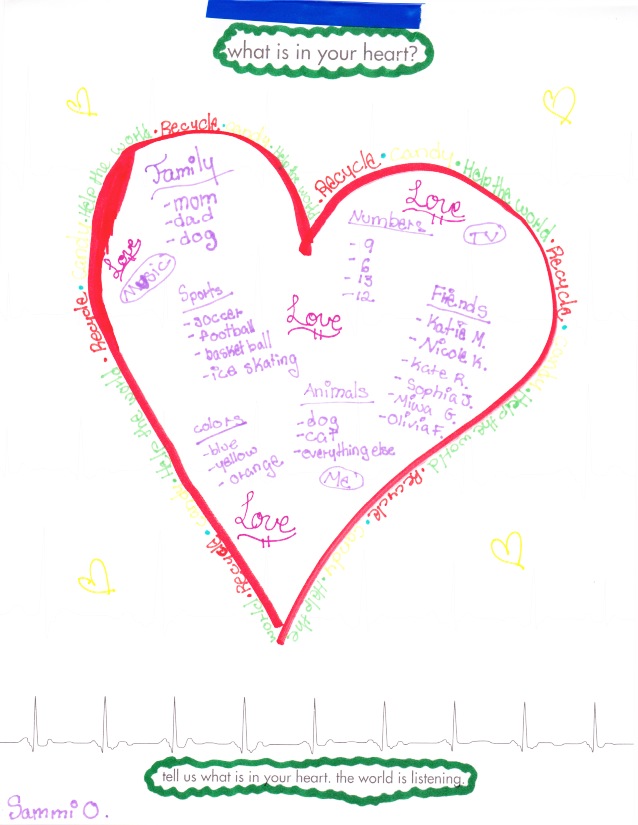 what is in your heart?
Recycle · candy · Help the world · Recycle · candy · Help the world · Recycle · candy · Help the world · Recycle · candy · Help the world
Recycle · candy · Help the world · Recycle · candy · Help the world · Recycle · candy · Help the world
Family
- mom
- dad
- dog
Love
Music
Love
Numbers
- 9
- 6
- 13
- 12
TV
Sports
- soccer
- football
- basketball
- ice skating
Love
Fiends
- Katie M.
- Nicole K.
- Kate R.
- Sophia J.
- Miwa G.
- Olivia F.
Animals
- dog
- cat
- everything else
Me
colors
- blue
- yellow
- orange
Love
tell us what is in your heart. the world is listening.
Sammi O.